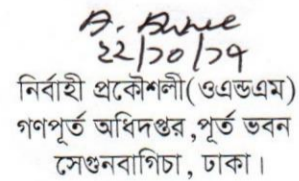 ২২/১০/১৭
নির্বাহী প্রকৌশলী(ওএন্ডএম)
গণপূর্ত অধিদপ্তর,পূর্ত ভবন
সেগুনবাগিচা, ঢাকা।